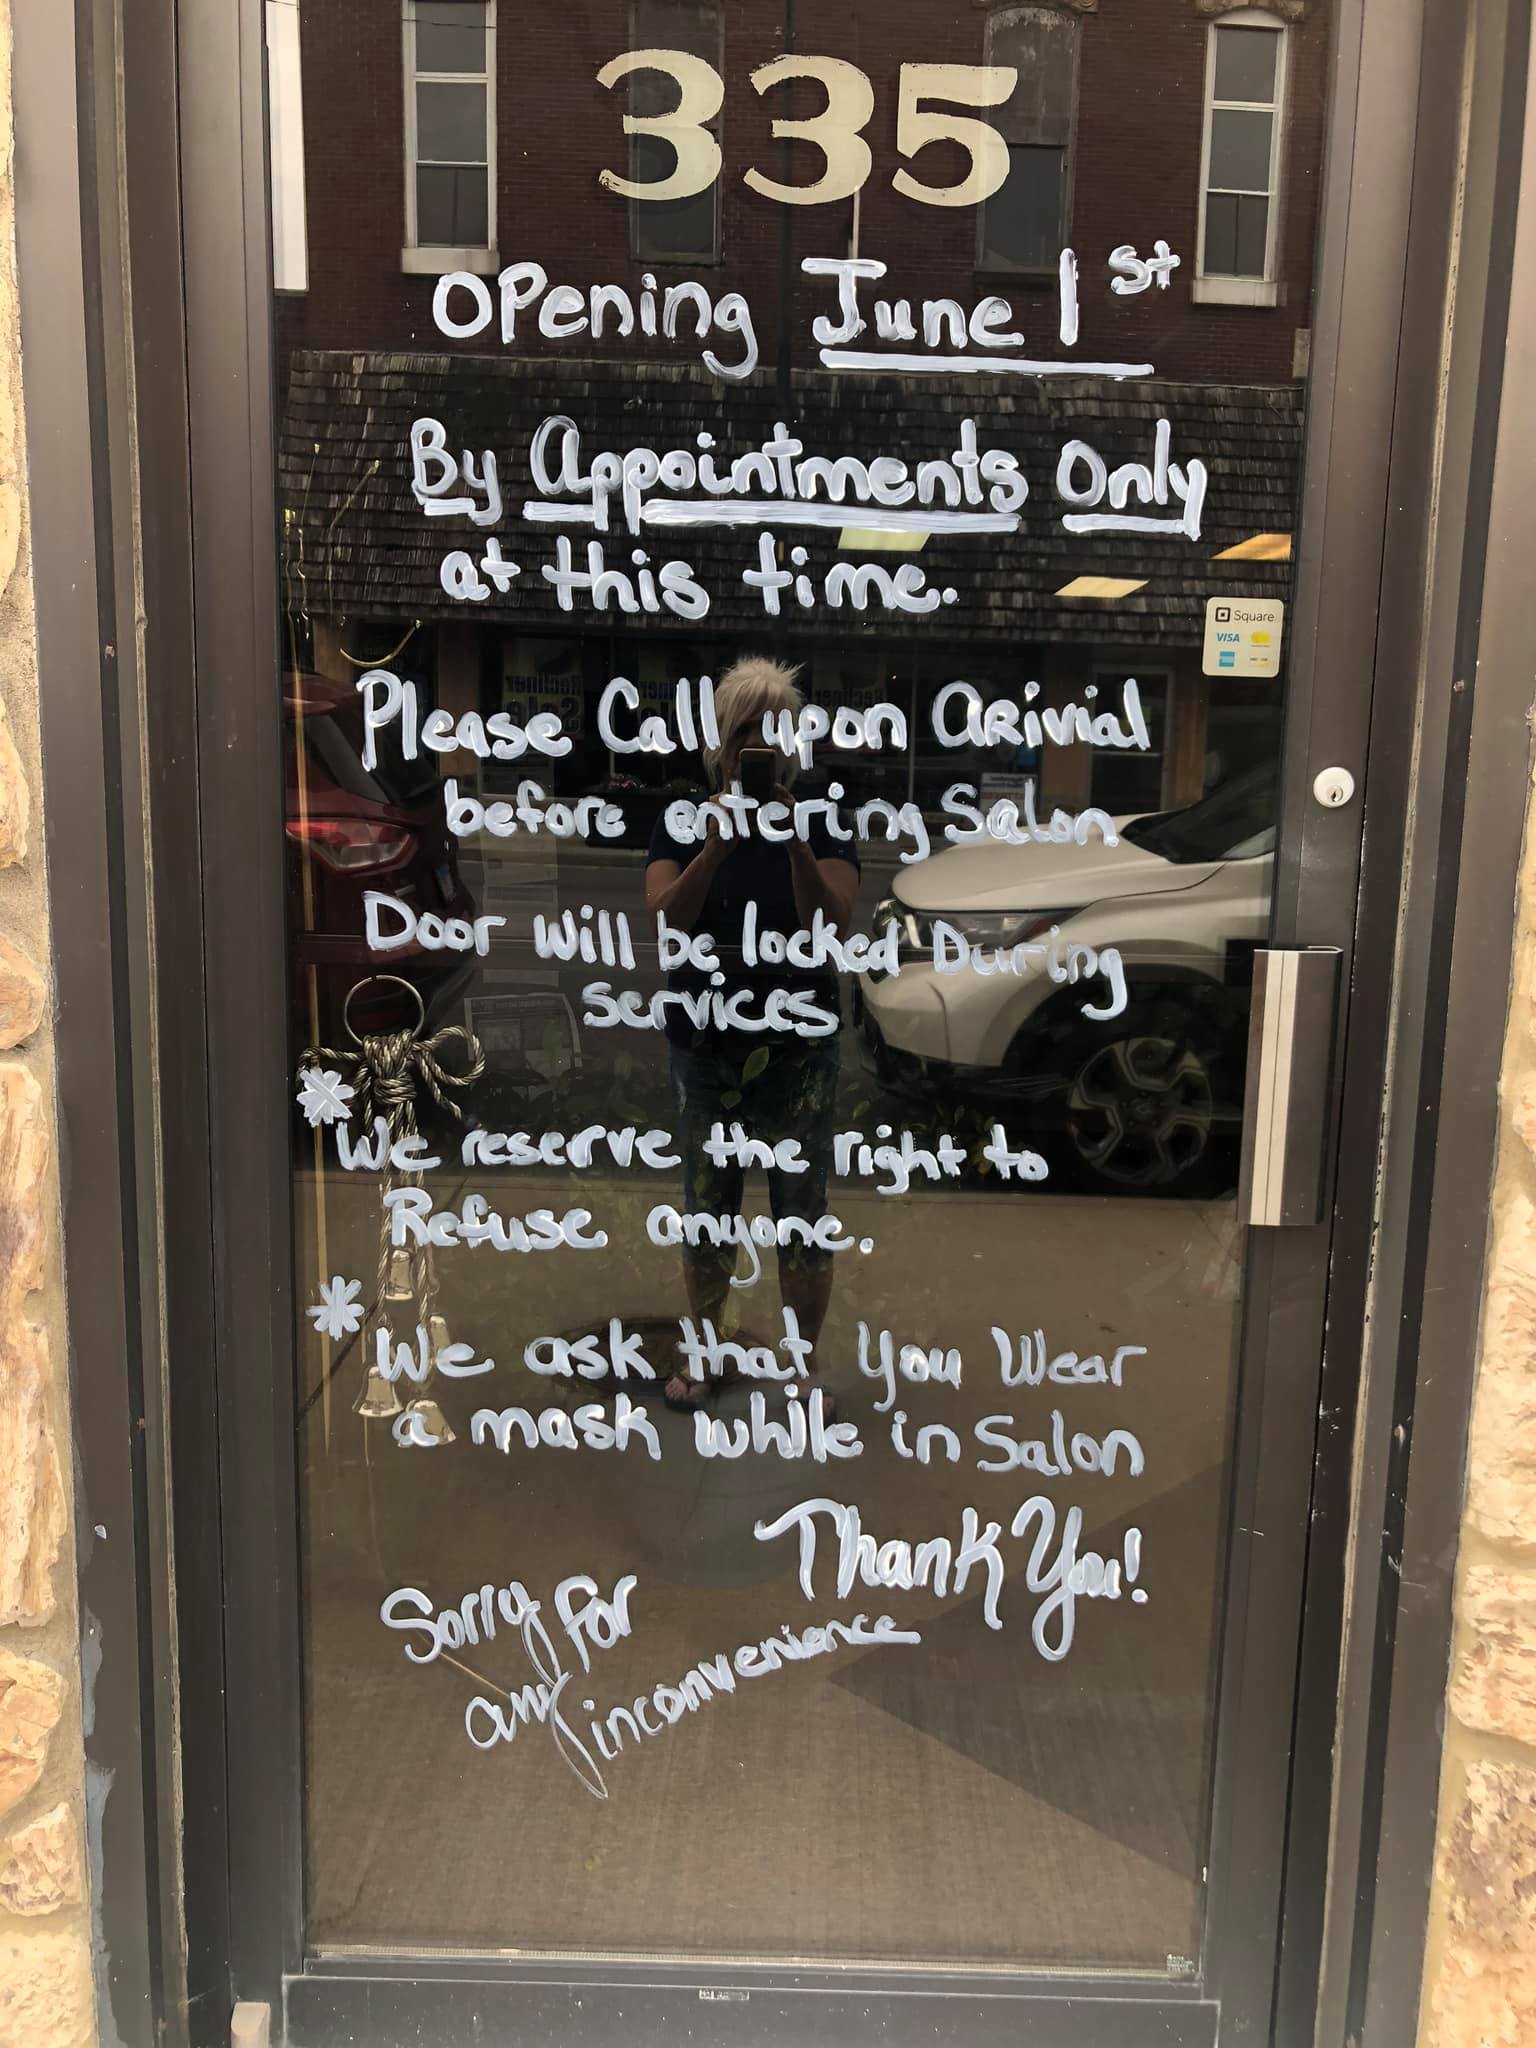 335
Opening June 1st
By Appointments Only
at this time.
Square
VISA
Please Call upon ARivial
before entering Salon
Door will be locked During
services
* We reserve the right to
Refuse anyone.
* We ask that you Wear
a mask while in Salon
Thank You!
Sorry for
any inconvenience